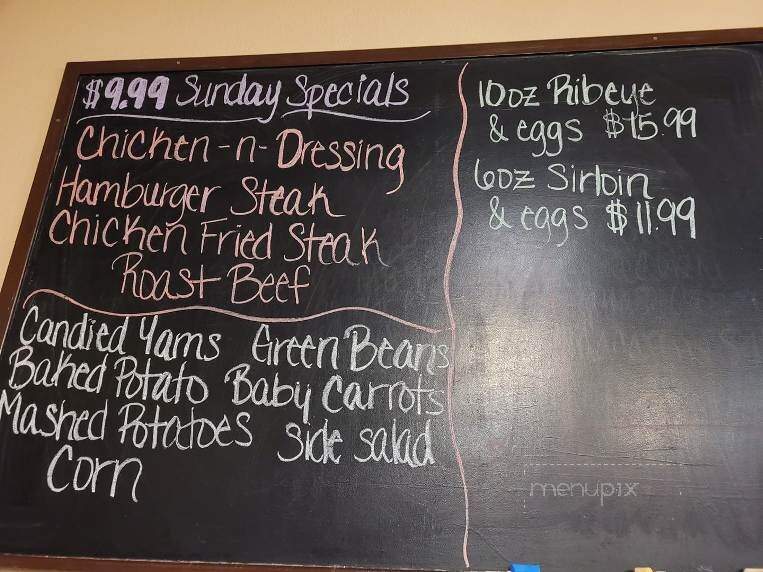 $9.99 Sunday Specials
Chicken-n-Dressing
Hamburger Steak
Chicken Fried Steak
Roast Beef
Candied Yams Green Beans
Baked Potato Baby Carrots
Mashed Potatoes Side Salad
Corn
10oz Ribeye
& eggs $15.99
6oz Sirloin
& eggs $11.99
menupix